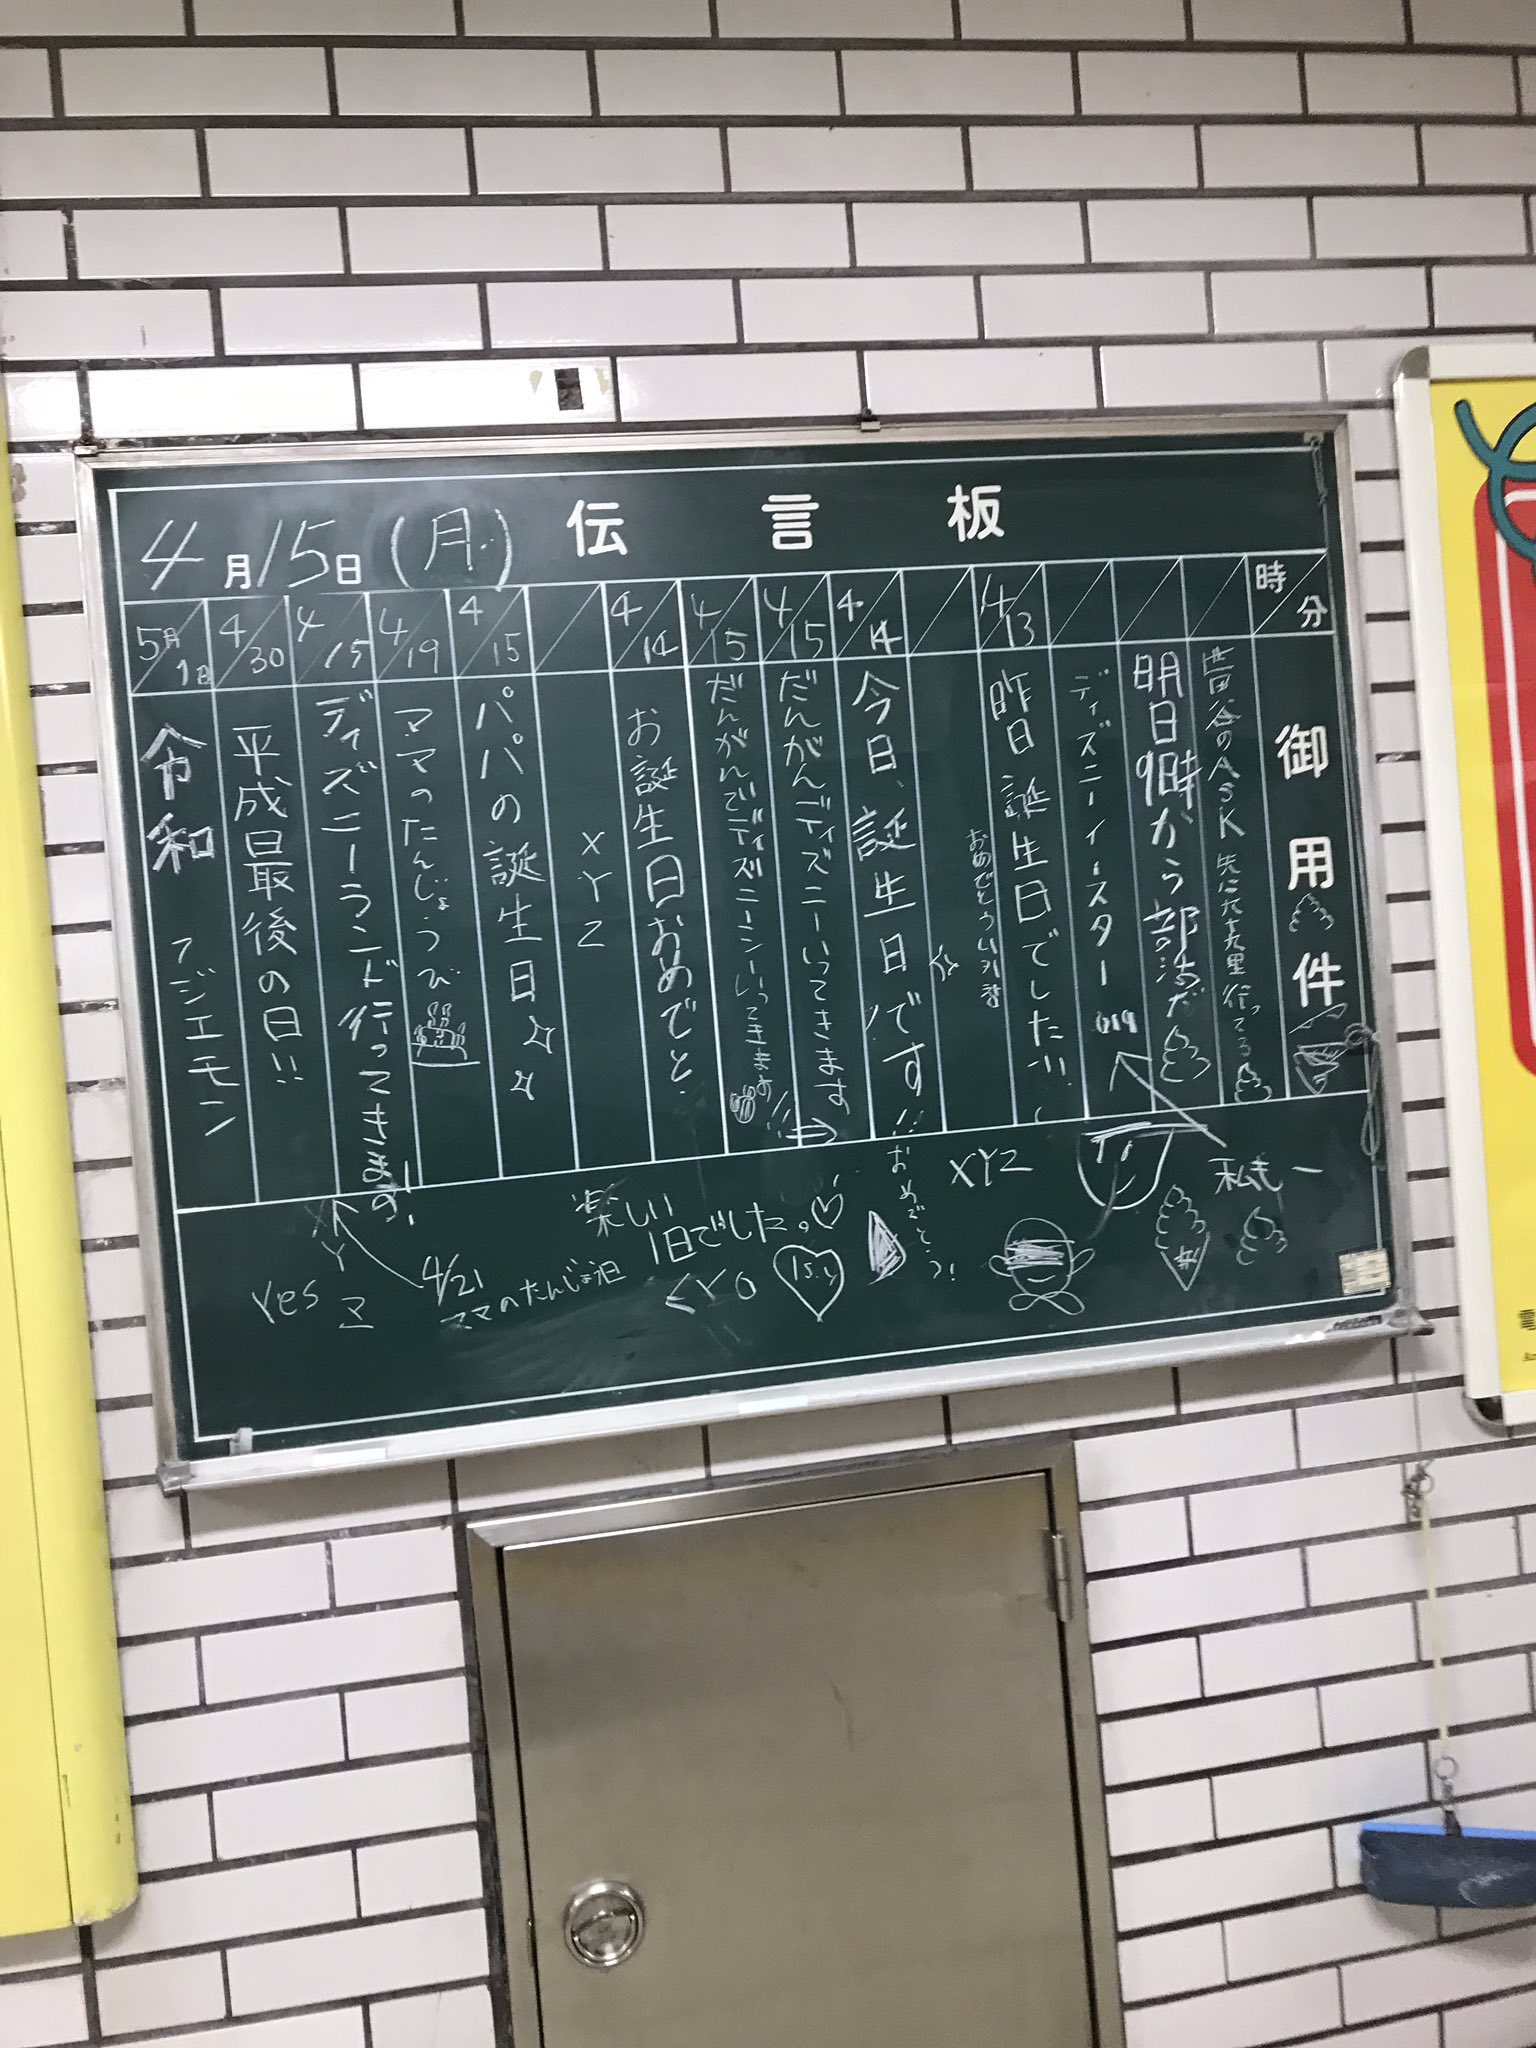 伝言板
4月15日(月)
時分
御用件
世田谷のASK 先に九十九里行ってる
明日9時から部活だ
ディズニーイースター
4/13
昨日誕生日でした!!!
おめでとういれ替
4/14
今日、誕生日です!!!おめでとう!
4/15
だんがんディズニーいってきます
4/15
だんがんでディズニーシーいってきます
4/14
お誕生日おめでと
XYZ
4/15
パパの誕生日
4/19
ママのたんじょうび
4/15
ディズニーランド行ってきます!
4/30
平成最後の日!!
5月1日
令和
私も一
XYZ
楽しい
1日でした。
15.4
4/21
ママのたんじょう日
XYZ
Yes